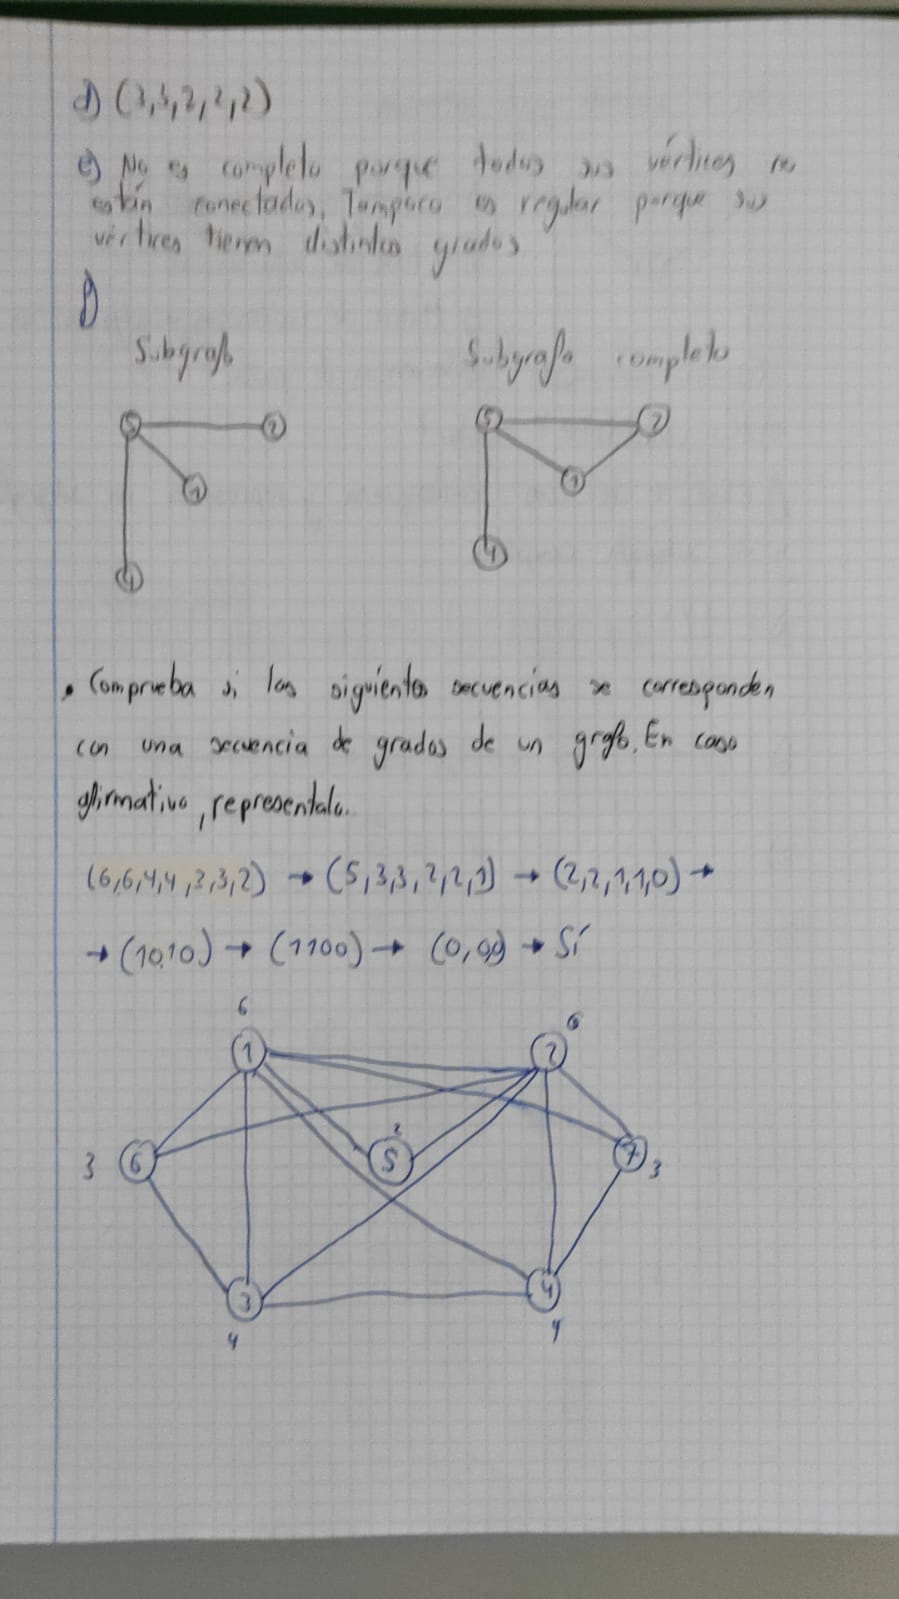 d) (3,3,2,2,2)
e) No es completo porque todos sus vértices no
están conectados. Tampoco es regular porque sus
vértices tienen distintos grados
f)
Subgrafo Subgrafo completo
5 2 5 2
1 1
4 4
• Comprueba si las siguientes secuencias se corresponden
con una secuencia de grados de un grafo. En caso
afirmativo, representalo.
(6,6,4,4,3,3,2) → (5,3,3,2,2,1) → (2,2,1,1,0) →
→ (1010) → (1100) → (0,0,0) → Sí
6 6
1 2
2
3 6 5 7 3
3 4
4 4